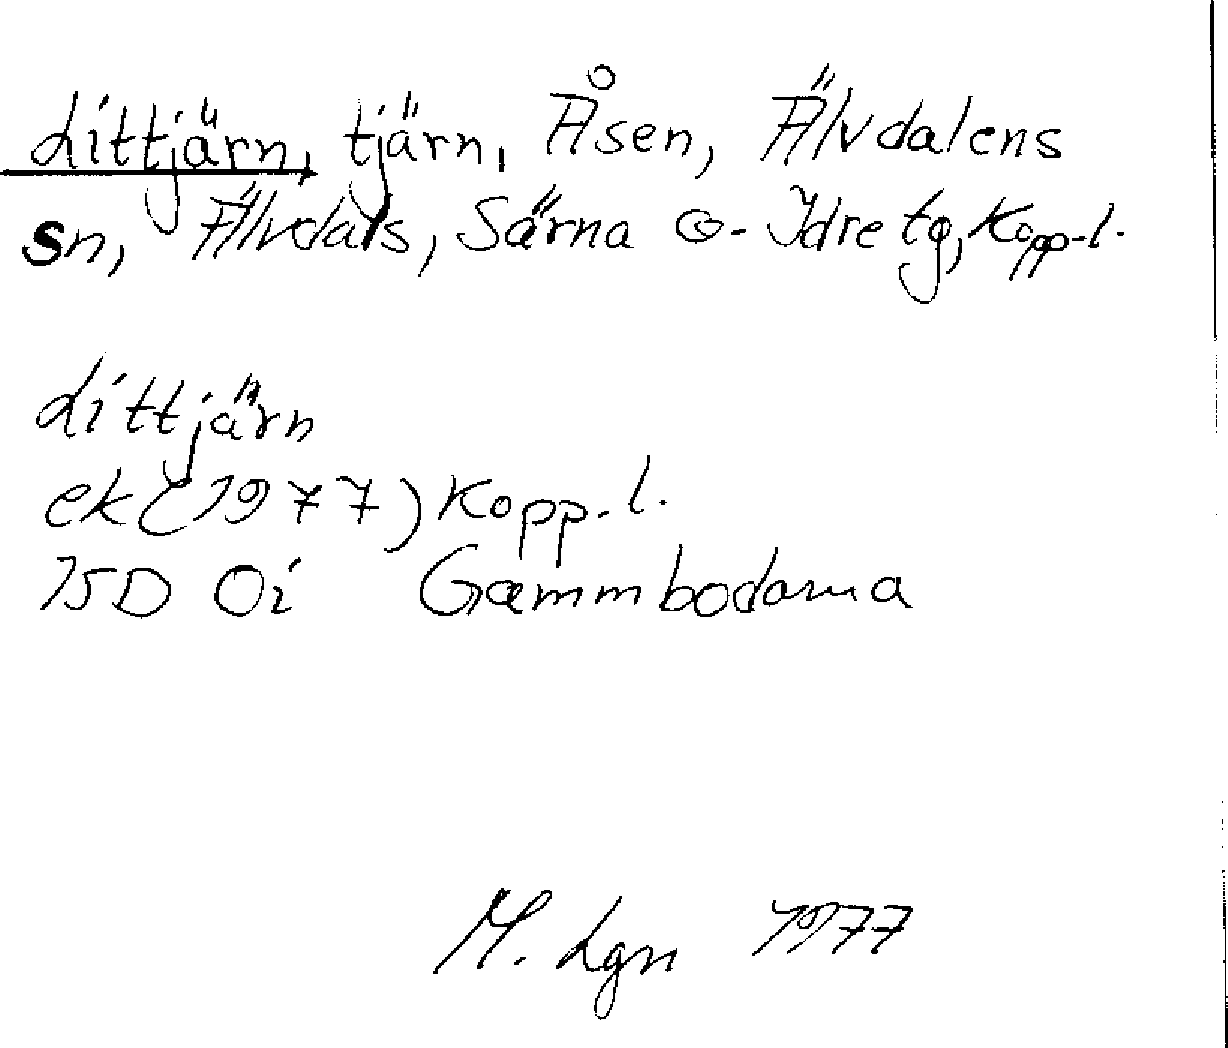 Littjärn, tjärn, Åsen, Älvdalens
sn, Älvdals, Särna o- Idre tg, Kopp-l.
Littjärn
ek (1977) Kopp-l.
15D Oi Gammbodarna
M. Lgn 1977